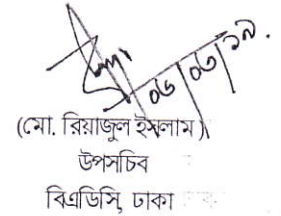 ০৬/০৩/১৯.
(মো. রিয়াজুল ইসলাম)
উপসচিব
বিএডিসি, ঢাকা